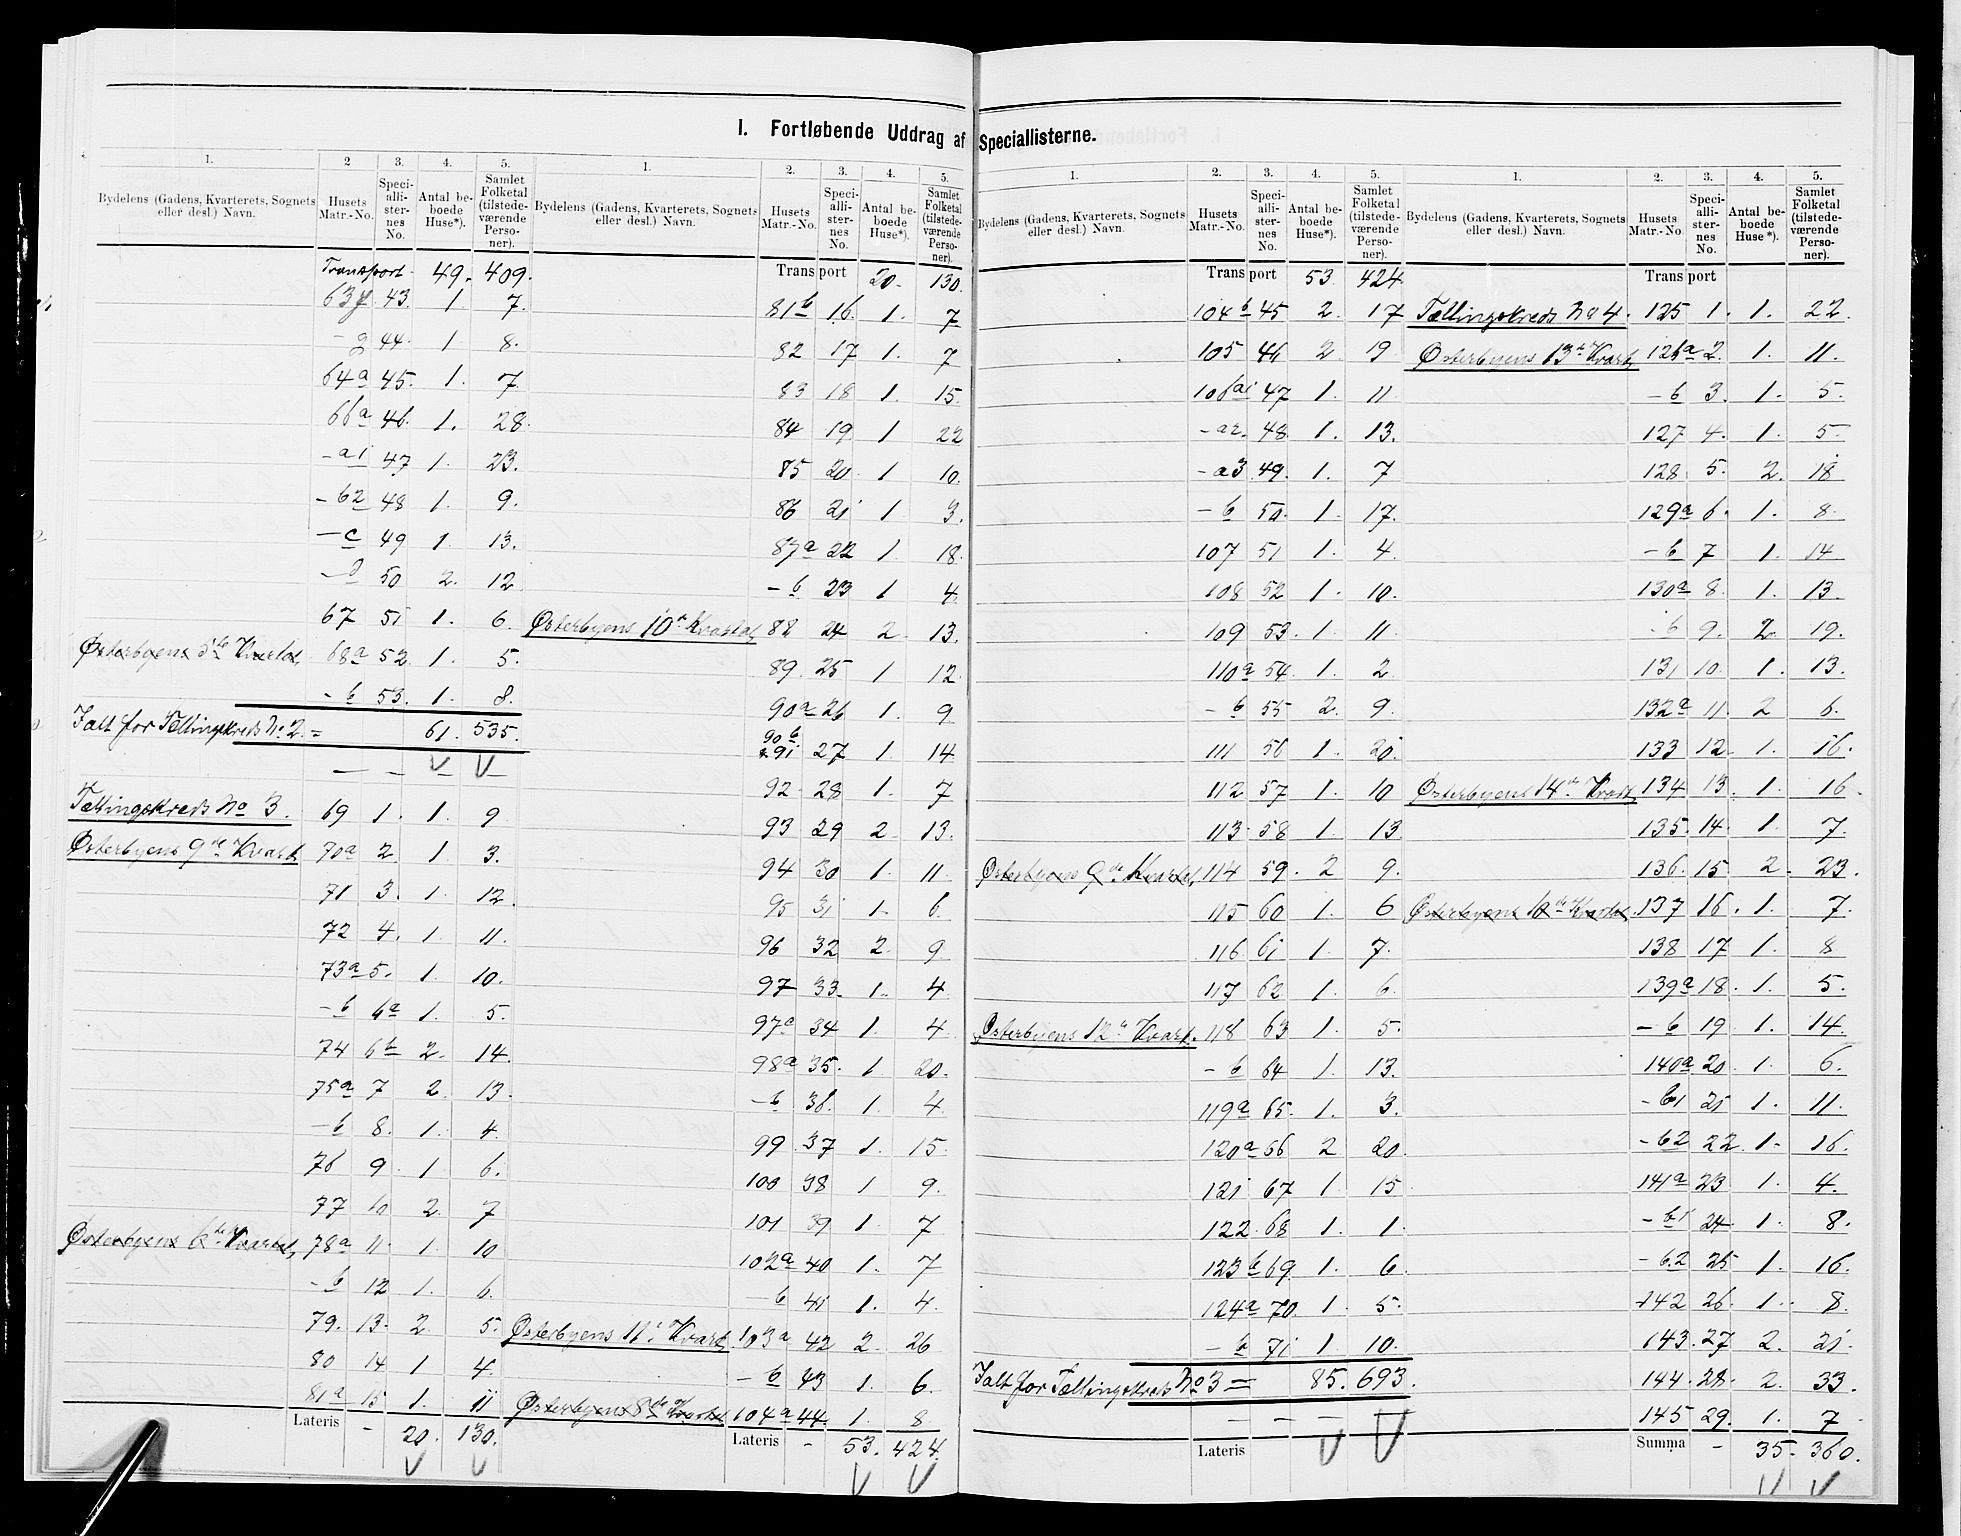 I. Fortløbende Uddrag af Speciallisterne.
1. 2 3. 4. 5.
Bydelens (Gadens, Kvarterets, Sognets eller desl.) Navn. Husets Matr.-No. Speciallisternes No. Antal beboede Huse*). Samlet Folketal (tilstedeværende Personer).
Transport 49. 409.
63f 43. 1. 7.
- g 44. 1. 8.
64a 45. 1. 7.
66a 46. 1. 28.
- a1 47 1. 23.
- b2 48 1. 9.
- c 49 1. 13.
- d 50 2. 12
67 51 1. 6.
Østerbyens 5te Kvartal, 68a 52 1. 5.
- b 53. 1. 8.
Ialt for Tællingskreds No. 2. = 61. 535.
Tællingskreds No 3. 69 1. 1. 9
Østerbyens 9de Kvart. 70a 2 1 3.
71 3. 1. 12.
72 4. 1 11.
73a 5. 1. 10.
- b 6a 1. 5.
74 6b 2. 14.
75a 7 2 13.
- b 8. 1. 4.
76 9 1 6.
77 10 2. 7
Østerbyens 6te Kvartal, 78a 11. 1. 10
- b 12 1. 6.
79. 13. 2. 5.
80 14 1 4.
81a 15 1. 11
Lateris - 20. 130.
1. 2. 3. 4. 5.
Bydelens (Gadens, Kvarterets, Sognets eller desl.) Navn. Husets Matr.-No. Speciallisternes No. Antal beboede Huse*). Samlet Folketal (tilstedeværende Personer).
Transport 20. 130.
81b 16. 1. 7
82 17 1. 7
83 18 1. 15.
84 19 1 22
85 20 1 10.
86 21 1 3.
87a 22 1. 18.
- b 23 1 4.
Østerbyens 10de Kvartal, 88 24 2. 13.
89. 25 1 12
90a 26 1. 9
90b & 91 27 1. 14
92. 28 1. 7
93 29 2. 13.
94 30 1. 11
95 31 1. 6.
96 32 2. 9
97 33. 1. 4
97a 34 1. 4.
98a 35. 1. 20.
- b 36. 1. 4
99 37 1. 15.
100 38 1 9.
101 39 1. 7
102a 40 1. 7
- b 41 1. 4.
Østerbyens 11te Kvart. 103a 42 2. 26
- b 43 1. 6.
Østerbyens 8de Kvartal 104a 44. 1. 8
Lateris - 53. 424.
1. 2. 3. 4. 5.
Bydelens (Gadens, Kvarterets, Sognets eller desl.) Navn. Husets Matr.-No. Speciallisternes No. Antal beboede Huse*). Samlet Folketal (tilstedeværende Personer).
Transport 53. 424.
104b 45 2. 17
105 46 2 19
106a1 47 1. 11
- a2. 48. 1. 13.
- a3 49. 1. 7
- b 50. 1. 17.
107 51 1. 4.
108 52 1. 10.
109 53. 1. 11
110a 54. 1. 2
- b 55 2. 9.
111 56 1. 20.
112 57 1. 10
113. 58 1. 13
Østerbyens 9de Kvartal, 114 59. 2 9.
115 60 1. 6
116 61 1 7.
117 62 1. 6.
Østerbyens 12te Kvart. 118 63 1. 5.
- b 64 1. 13.
119a 65. 1. 3.
120a 66 2 20.
121 67 1. 15
122. 68 1. 1.
123b 69. 1. 6.
124a 70. 1. 5.
- b 71 1 10.
Ialt for Tællingskreds No 3 = 85. 693.
Lateris
1. 2. 3. 4. 5.
Bydelens (Gadens, Kvarterets, Sognets eller desl.) Navn. Husets Matr.-No. Speciallisternes No. Antal beboede Huse*). Samlet Folketal (tilstedeværende Personer).
Transport
Tællingskreds No 4. 125 1. 1. 22.
Østerbyens 13de Kvart. 126a 2. 1. 11.
- b 3. 1. 5.
127 4. 1. 5.
128 5. 2. 18
129a 6. 1. 8.
- b 7 1. 14
130a 8. 1. 13.
- b 9. 2. 19.
131 10. 1. 13.
132a 11. 2 6.
133 12. 1. 16.
Østerbyens 14de Kvart. 134 13. 1. 16.
135. 14. 1. 7.
136. 15 2. 23.
Østerbyens 10de Kvartal. 137 16. 1. 7.
138 17 1. 8
139a 18. 1. 5.
- b 19 1. 14.
140a 20. 1. 6.
- b1 21 1. 11.
- b2 22. 1. 16.
141a 23 1. 4.
- b1 24 1. 8.
- b2 25 1. 16.
142 26. 1. 8.
143. 27 2. 21.
144. 28. 2. 33.
145 29. 1. 7
Summa - 35. 360.